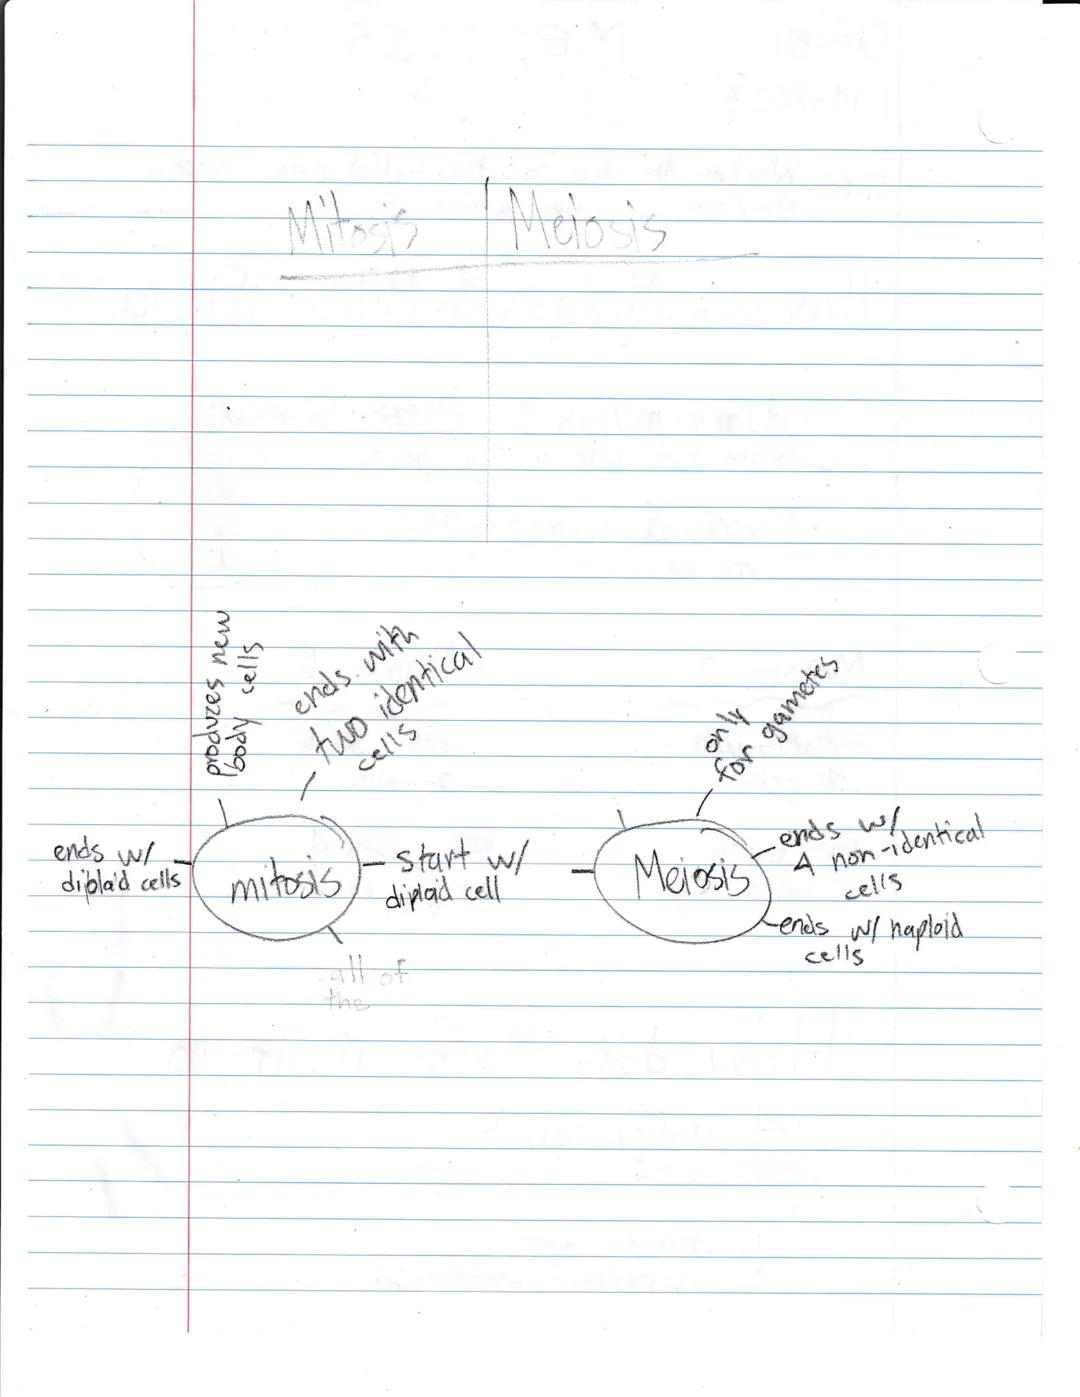 Mitosis | Meiosis
produzes new
body cells
ends with
two identical
cells
ends w/
diplaid cells
mitosis
start w/
diplaid cell
all of
the
only
for gametes
Meiosis
ends w/
4 non-identical
cells
ends w/ haploid
cells